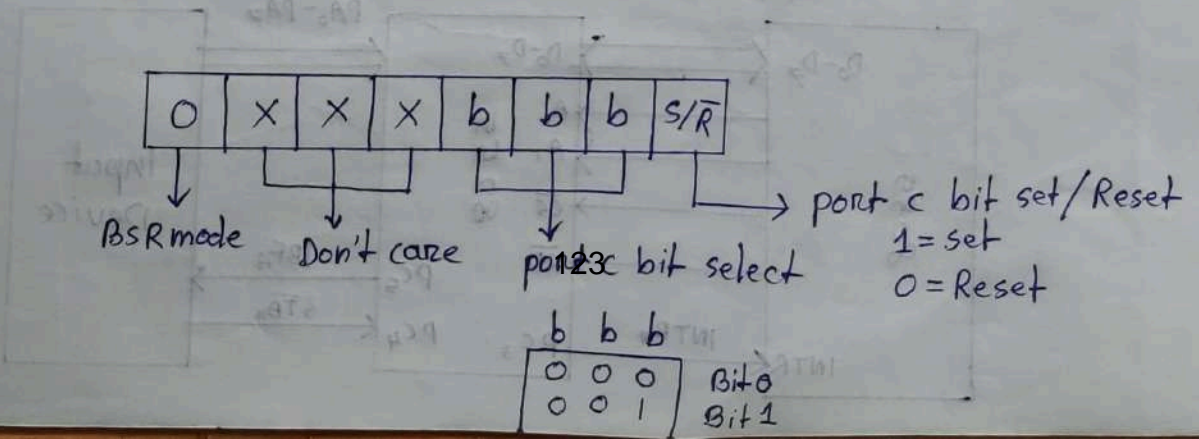 0 X X X b b b S/R̅
BSR mode Don't care port c bit select port c bit set/Reset
123
1 = set
0 = Reset
b b b
0 0 0 Bit 0
0 0 1 Bit 1